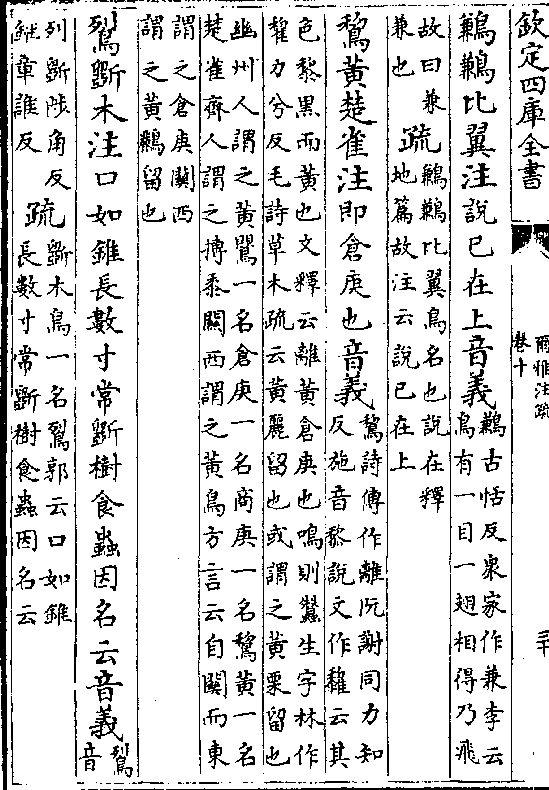 欽定四庫全書
爾雅注疏
卷十
鶼鶼比翼注說已在上音義
鶼古恬反衆家作兼李云
鳥有一目一翅相得乃飛
故曰兼
兼也
疏
鶼鶼比翼鳥名也說在釋
地篇故注云說已在上
鵹黃楚雀注即倉庚也音義
鵹詩傳作離阮謝同力知
反施音黎說文作云其
色黎黑而黃也文釋云離黃倉庚也鳴則蠶生字林作
力兮反毛詩草木疏云黃麗留也或謂之黃栗留也
幽州人謂之黃鸎一名倉庚一名商庚一名鵹黃一名
楚雀齊人謂之搏黍關西謂之黃鳥方言云自關而東
謂之倉庚關西
謂之黃鸝留也
鴷斲木注口如錐長數寸常斲樹食蟲因名云音義
鴷
音
列斲陟角反
錐章誰反
疏
斲木鳥一名鴷郭云口如錐
長數寸常斲樹食蟲因名云